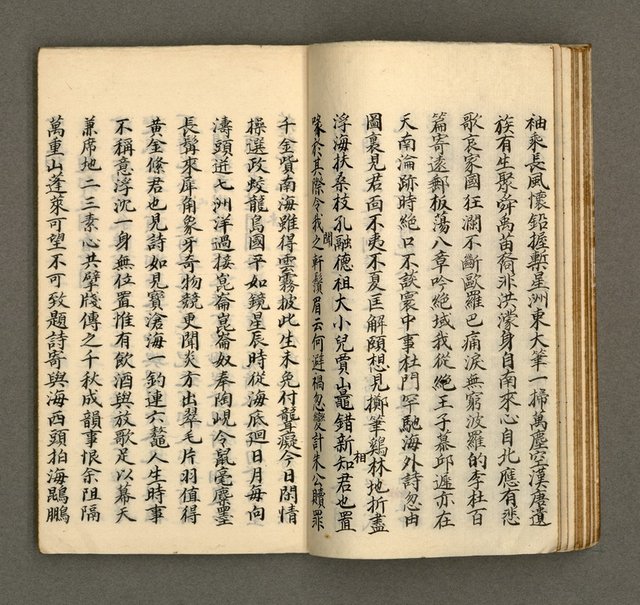 袖乘長風懷鉛握槧星洲東大筆一掃萬塵空漢唐遺
族有生聚舜禹苗裔非洪濛身自南來心自北應有悲
歌哀家國狂瀾不斷歐羅巴痛淚無窮波羅的李杜百
篇寄遠郵板蕩八章吟絕域我從絕王子慕邱遲亦在
天南淪跡時絕口不談寰中事杜門罕馳海外詩忽由
圖裏見君面不夷不夏匡解頤想見擲筆鷄林地折盡
浮海扶桑枝孔融德祖大小兒賈山鼂錯新知君也置
喙於其際令我之聞軒鬚眉云何避禍忽變計朱公贖罪
千金貲南海雖得雲霧披此生未免付聾癡今日閒情
操選政蛟龍島國平如鏡星辰時從海底廻日月每向
濤頭迸七洲洋過接崑崙崑崙奴奉陶峴令鼠毫麋墨
長髯來犀角象牙奇物競更聞炎方出翠毛片羽值得
黃金條君也見詩如見寶滄海一釣連六鰲人生時事
不稱意浮沉一身無位置惟有飲酒與放歌足以幕天
兼席地二三素心共擘牋傳之千秋成韻事恨余阻隔
萬重山蓬萊可望不可致題詩寄與海西頭拍海鵾鵬